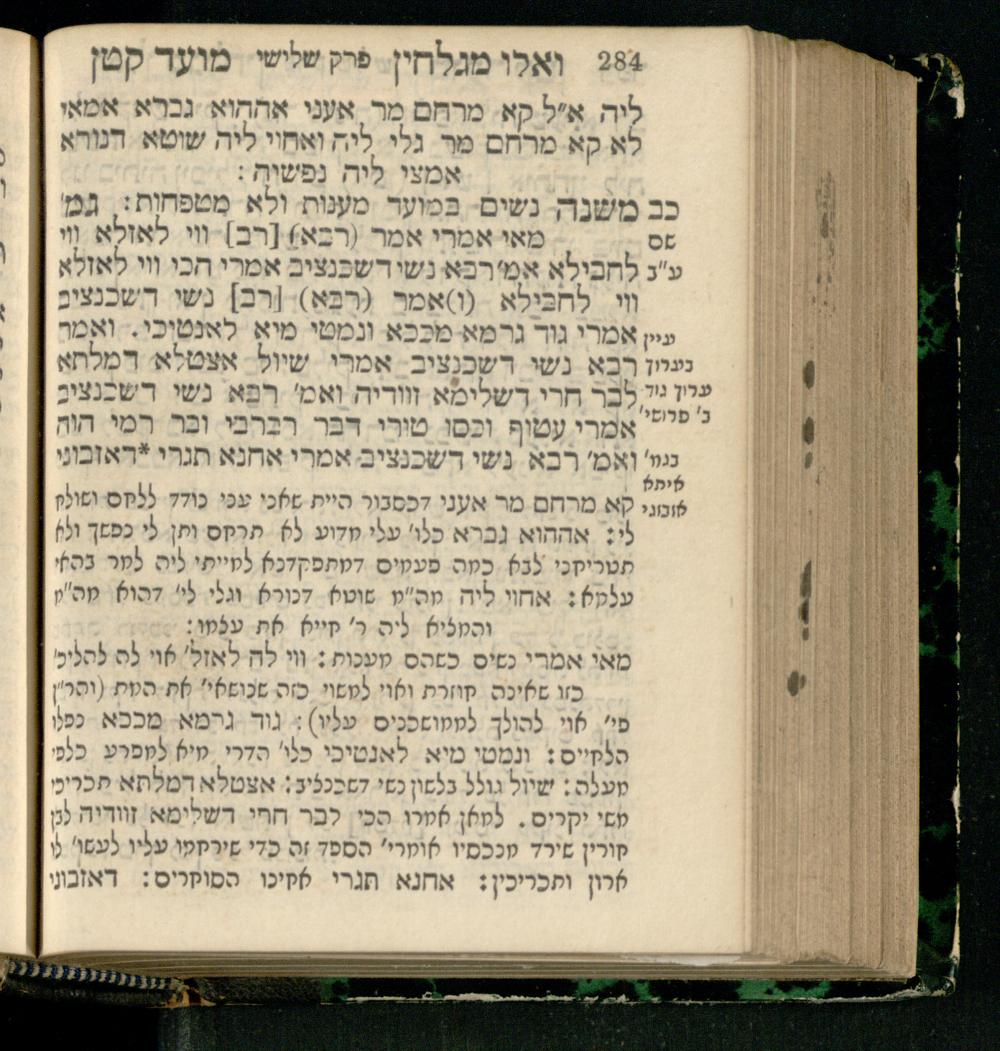 284 ואלו מגלחין פרק שלישי מועד קטן
ליה א״ל קא מרחם מר אעני אההוא גברא אמאי
לא קא מרחם מר גלי ליה ואחוי ליה שוטא דנורא
אמצי ליה נפשיה :
כב משנה נשים במועד מענות ולא מטפחות : גמ׳
שם מאי אמרי אמר (רבא) [רב] ווי לאזלא ווי
ע"ב לחבילא אמ׳ רבא נשי דשכנציב אמרי הכי ווי לאזלא
ווי לחבילא (ו)אמר (רבא) [רב] נשי דשכנציב
עיין אמרי גוד גרמא מככא ונמטי מיא לאנטיכי. ואמר
בערוך רבא נשי דשכנציב אמרי שיול אצטלא דמלתא
ערוך גוד לבר חרי דשלימא זוודיה ואמ׳ רבא נשי דשכנציב
ב׳ פרושי׳ אמרי עטוף וכסו טורי דבר רברבי ובר רמי הוה
בגמ׳ ואמ׳ רבא נשי דשכנציב אמרי אחנא תגרי *דאזבוני
איתא
אזבוגי קא מרחם מר אעני דכסבור היית שאני עני נודד ללקט ושולק
לי : אההוא גברא כלו׳ עלי מדוע לא תרחם ותן לי נפשך ולא
תטריחני לבא כמה פעמים דמתפקדנא למייתי ליה למר בהאי
עלמא : אחוי ליה מה"מ שוטא דנורא וגלי לי׳ דהוא מה"מ
והמציא ליה ר׳ חייא את עצמו :
מאי אמרי נשים כשהם מענות : ווי לה לאזל׳ אוי לה להליכ׳
כזו שאינה חוזרת ואוי למשוי כזה שנושאי׳ את המת (והר"ן
פי׳ אוי להולך לממושכנים עליו) : גוד גרמא מככא נפלו
הלחיים : ונמטי מיא לאנטיכי כלו׳ הדרי מיא למפרע כלפי
מעלה : שיול גולל בלשון נשי דשכנציב : אצטלא דמלתא תכריכי
משי יקרים. למאן אמרו הכי לבר חרי דשלימא זוודיה לבן
חורין שירד מנכסיו אומרי׳ הספד זה כדי שירחמו עליו לעשו׳ לו
ארון ותכריכין : אחנא תגרי אחינו הסוחרים : דאזבוני